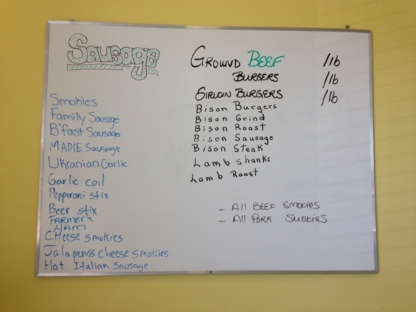 Sausage
Smokies
Family Sausage
B'fast Sausage
MAPLE Sausage
Ukranian Garlic
Garlic coil
Pepperoni stix
Beer stix
FARMER'S
HAM
CHeese smokies
Jalapeno & Cheese smokies
Hot Italian Sausage
GROWVD BEEF /lb
BURGERS /lb
SIRLOIN BURGERS /lb
Bison Burgers
Bison Grind
Bison Roast
Bison Sausage
Bison Steak
Lamb shanks
Lamb Roast
- All BEEF SMOKIES
- All PORK SMOKIES